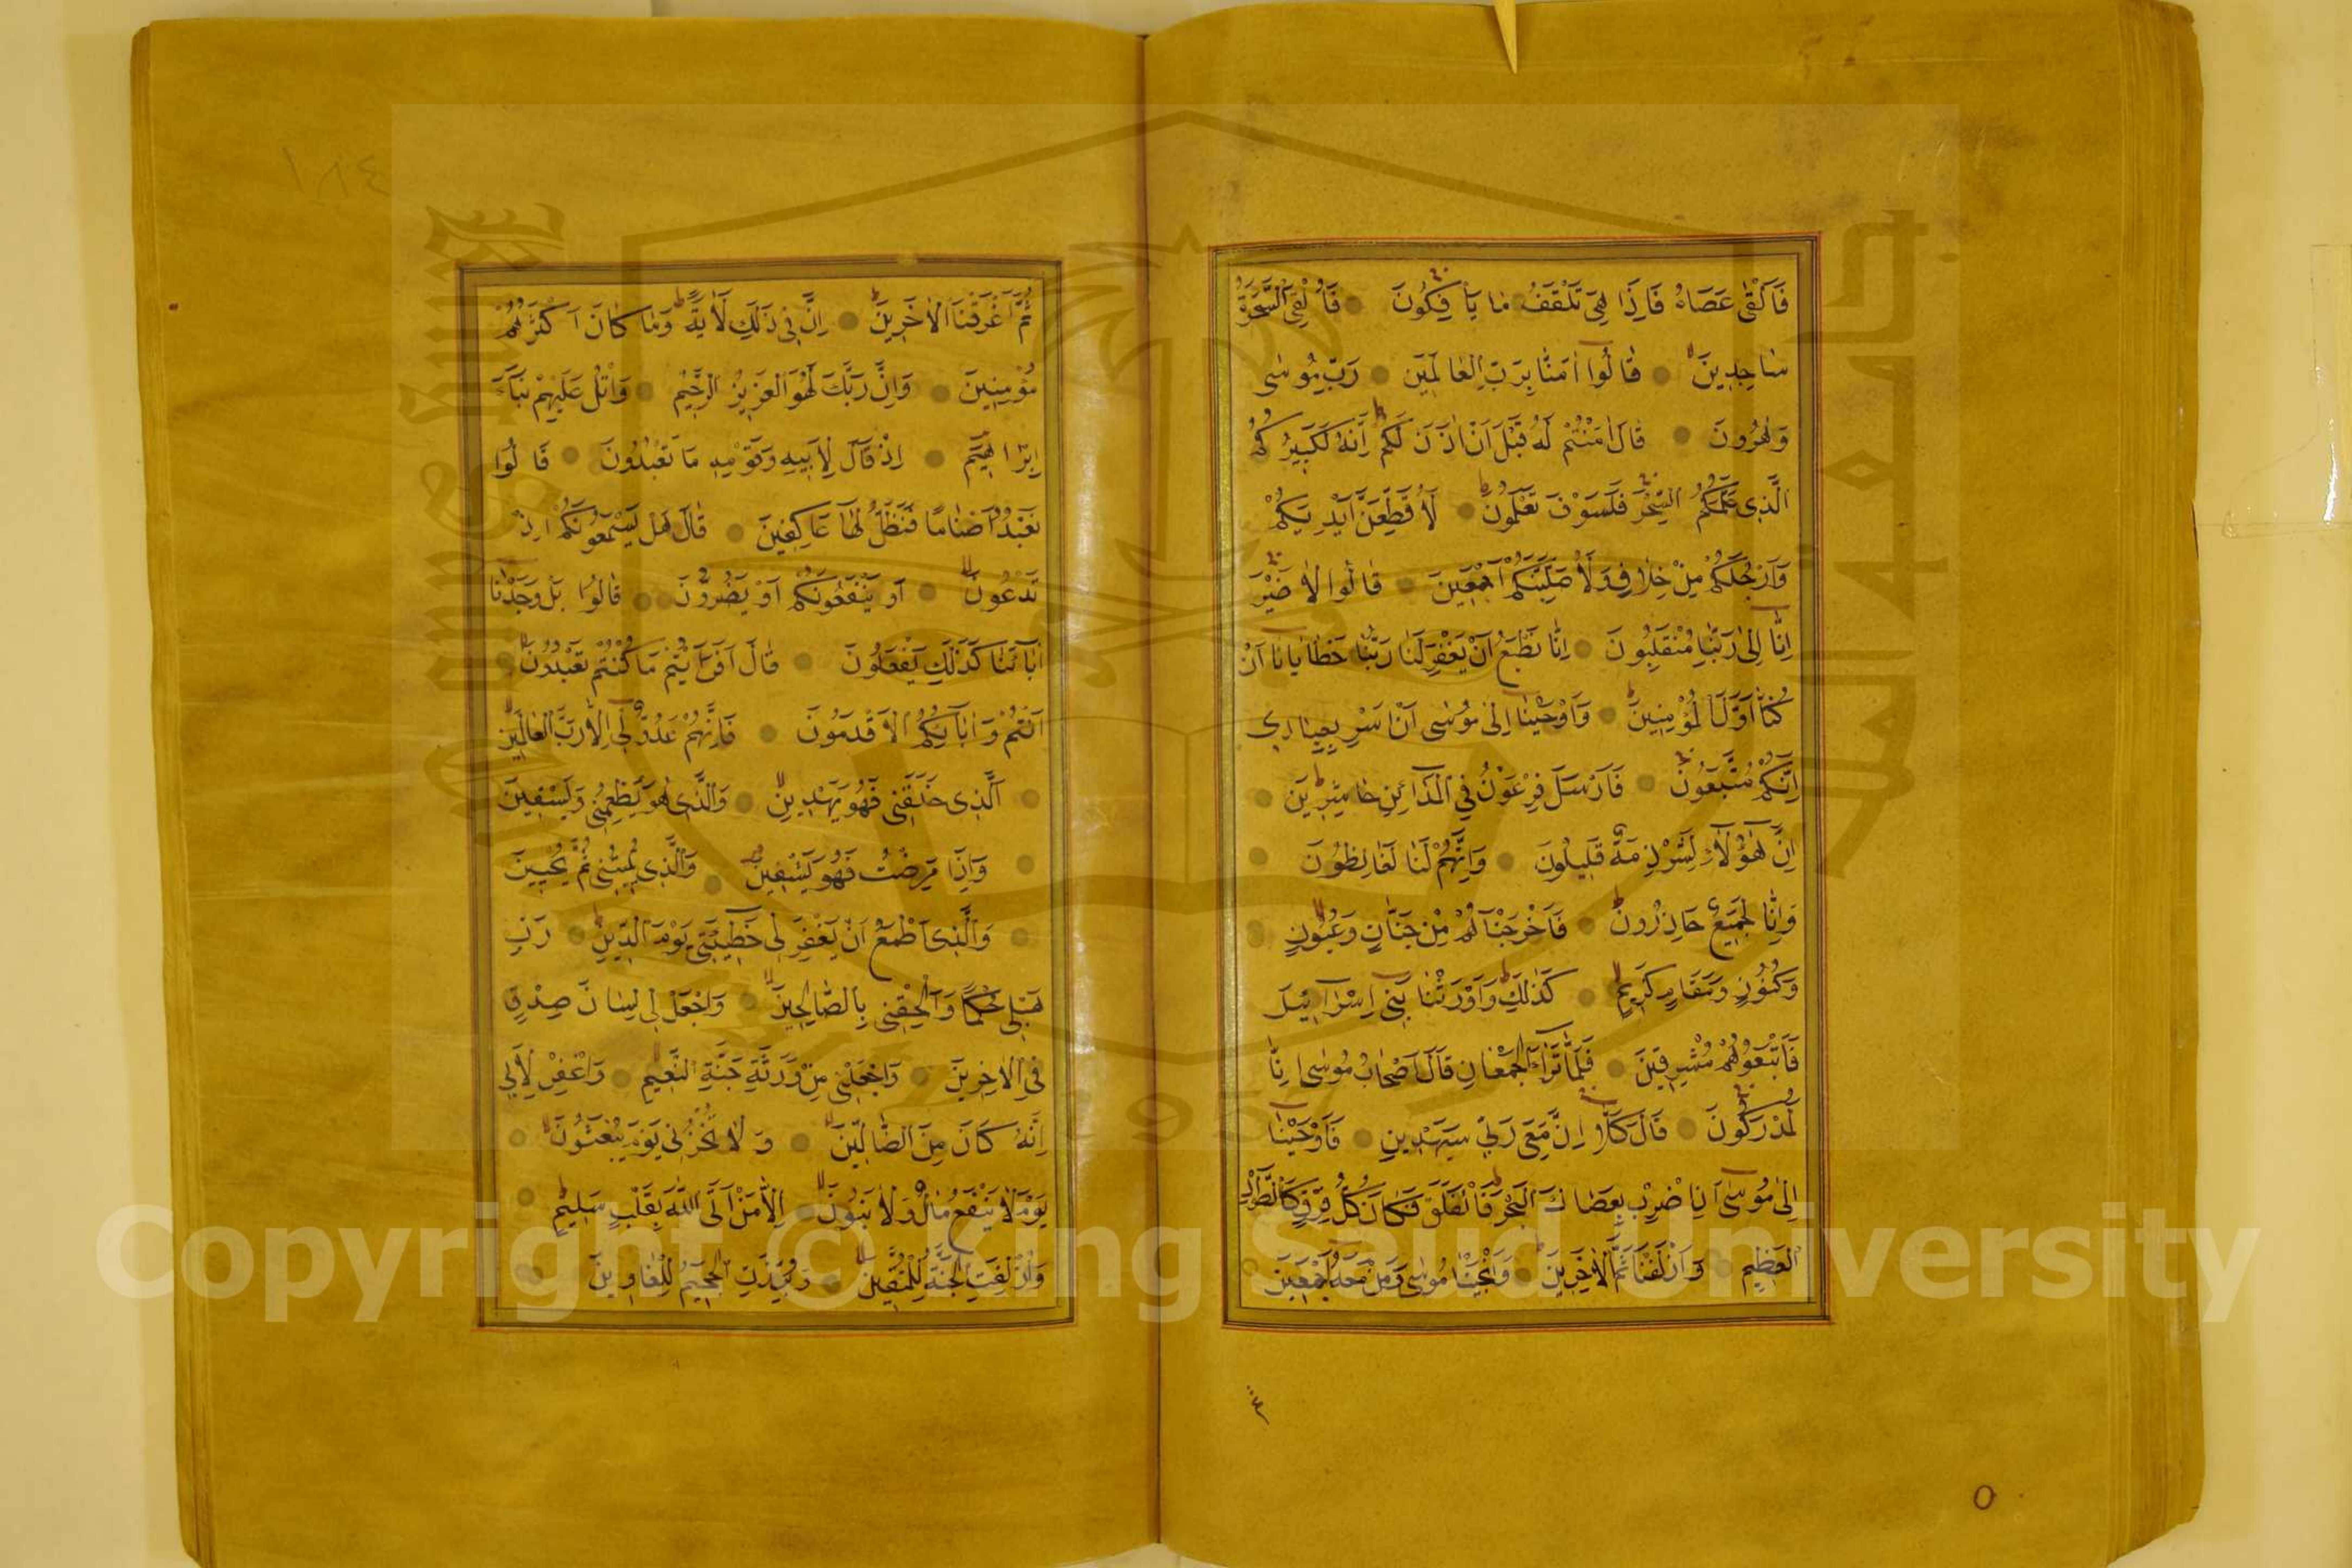 فَاَلْقٰى عَصَاهُ فَاِذَا هِىَ تَلْقَفُ مٰا يَاْفِكُونَ فَاُلْقِىَ السَّحَرَةُ
سٰاجِدِينَ قٰالُوا اٰمَنّٰا بِرَبِّ الْعٰالَمِينَ رَبِّ مُوسٰى
وَهٰرُونَ قٰالَ اٰمَنْتُمْ لَهُ قَبْلَ اَنْ اٰذَنَ لَكُمْ اِنَّهُ لَكَبِيرُكُمُ
الَّذِى عَلَّمَكُمُ السِّحْرَ فَلَسَوْفَ تَعْلَمُونَ لَاُقَطِّعَنَّ اَيْدِيَكُمْ
وَاَرْجُلَكُمْ مِنْ خِلٰافٍ وَلَاُصَلِّبَنَّكُمْ اَجْمَعِينَ قٰالُوا لٰا ضَيْرَ
اِنّٰا اِلٰى رَبِّنٰا مُنْقَلِبُونَ اِنّٰا نَطْمَعُ اَنْ يَغْفِرَ لَنٰا رَبُّنٰا خَطٰايٰانٰا اَنْ
كُنّٰا اَوَّلَ الْمُؤْمِنِينَ وَاَوْحَيْنٰا اِلٰى مُوسٰى اَنْ اَسْرِ بِعِبٰادِى
اِنَّكُمْ مُتَّبَعُونَ فَاَرْسَلَ فِرْعَوْنُ فِى الْمَدٰائِنِ حٰاشِرِينَ
اِنَّ هٰؤُلٰاءِ لَشِرْذِمَةٌ قَلِيلُونَ وَاِنَّهُمْ لَنٰا لَغٰائِظُونَ
وَاِنّٰا لَجَمِيعٌ حَاذِرُونَ فَاَخْرَجْنَاهُمْ مِنْ جَنّٰاتٍ وَعُيُونٍ
وَكُنُوزٍ وَمَقَامٍ كَرِيمٍ كَذٰلِكَ وَاَوْرَثْنٰا بَنِى اِسْرٰائِيلَ
فَاَتْبَعُوهُمْ مُشْرِقِينَ فَلَمّٰا تَرٰاءَ الْجَمْعٰانِ قٰالَ اَصْحٰابُ مُوسٰى اِنّٰا
لَمُدْرَكُونَ قٰالَ كَلّٰا اِنَّ مَعِىَ رَبِّى سَيَهْدِينِ فَاَوْحَيْنٰا
اِلٰى مُوسٰى اَنِ اضْرِبْ بِعَصٰاكَ الْبَحْرَ فَانْفَلَقَ فَكَانَ كُلُّ فِرْقٍ كَالطَّوْدِ
الْعَظِيمِ وَاَزْلَفْنَا ثَمَّ الْاٰخَرِينَ وَاَنْجَيْنٰا مُوسٰى وَمَنْ مَعَهُ اَجْمَعِينَ
ثُمَّ
٥
١٨٤
ثُمَّ اَغْرَقْنَا الْاٰخَرِينَ اِنَّ فِى ذٰلِكَ لَاٰيَةً وَمٰا كَانَ اَكْثَرُهُمْ
مُؤْمِنِينَ وَاِنَّ رَبَّكَ لَهُوَ الْعَزِيزُ الرَّحِيمُ وَاتْلُ عَلَيْهِمْ نَبَاَ
اِبْرٰاهِيمَ اِذْ قَالَ لِاَبِيهِ وَقَوْمِهِ مَا تَعْبُدُونَ قَالُوا
نَعْبُدُ اَصْنٰامًا فَنَظَلُّ لَهٰا عَاكِفِينَ قٰالَ هَلْ يَسْمَعُونَكُمْ اِذْ
تَدْعُونَ اَوْ يَنْفَعُونَكُمْ اَوْ يَضُرُّونَ قٰالُوا بَلْ وَجَدْنٰا
اٰبٰاءَنٰا كَذٰلِكَ يَفْعَلُونَ قٰالَ اَفَرَاَيْتُمْ مَا كُنْتُمْ تَعْبُدُونَ
اَنْتُمْ وَاٰبٰاؤُكُمُ الْاَقْدَمُونَ فَاِنَّهُمْ عَدُوٌّ لِى اِلّٰا رَبَّ الْعٰالَمِينَ
اَلَّذِى خَلَقَنِى فَهُوَ يَهْدِينِ وَالَّذِى هُوَ يُطْعِمُنِى وَيَسْقِينِ
وَاِذَا مَرِضْتُ فَهُوَ يَشْفِينِ وَالَّذِى يُمِيتُنِى ثُمَّ يُحْيِينِ
وَالَّذِى اَطْمَعُ اَنْ يَغْفِرَ لِى خَطِيئَتِى يَوْمَ الدِّينِ رَبِّ
هَبْ لِى حُكْمًا وَاَلْحِقْنِى بِالصّٰالِحِينَ وَاجْعَلْ لِى لِسٰانَ صِدْقٍ
فِى الْاٰخِرِينَ وَاجْعَلْنِى مِنْ وَرَثَةِ جَنَّةِ النَّعِيمِ وَاغْفِرْ لِاَبِى
اِنَّهُ كَانَ مِنَ الضّٰالِّينَ وَلٰا تُخْزِنِى يَوْمَ يُبْعَثُونَ
يَوْمَ لٰا يَنْفَعُ مٰالٌ وَلٰا بَنُونَ اِلّٰا مَنْ اَتَى اللّٰهَ بِقَلْبٍ سَلِيمٍ
وَاُزْلِفَتِ الْجَنَّةُ لِلْمُتَّقِينَ وَبُرِّزَتِ الْجَحِيمُ لِلْغٰاوِينَ
Copyright © King Saud University